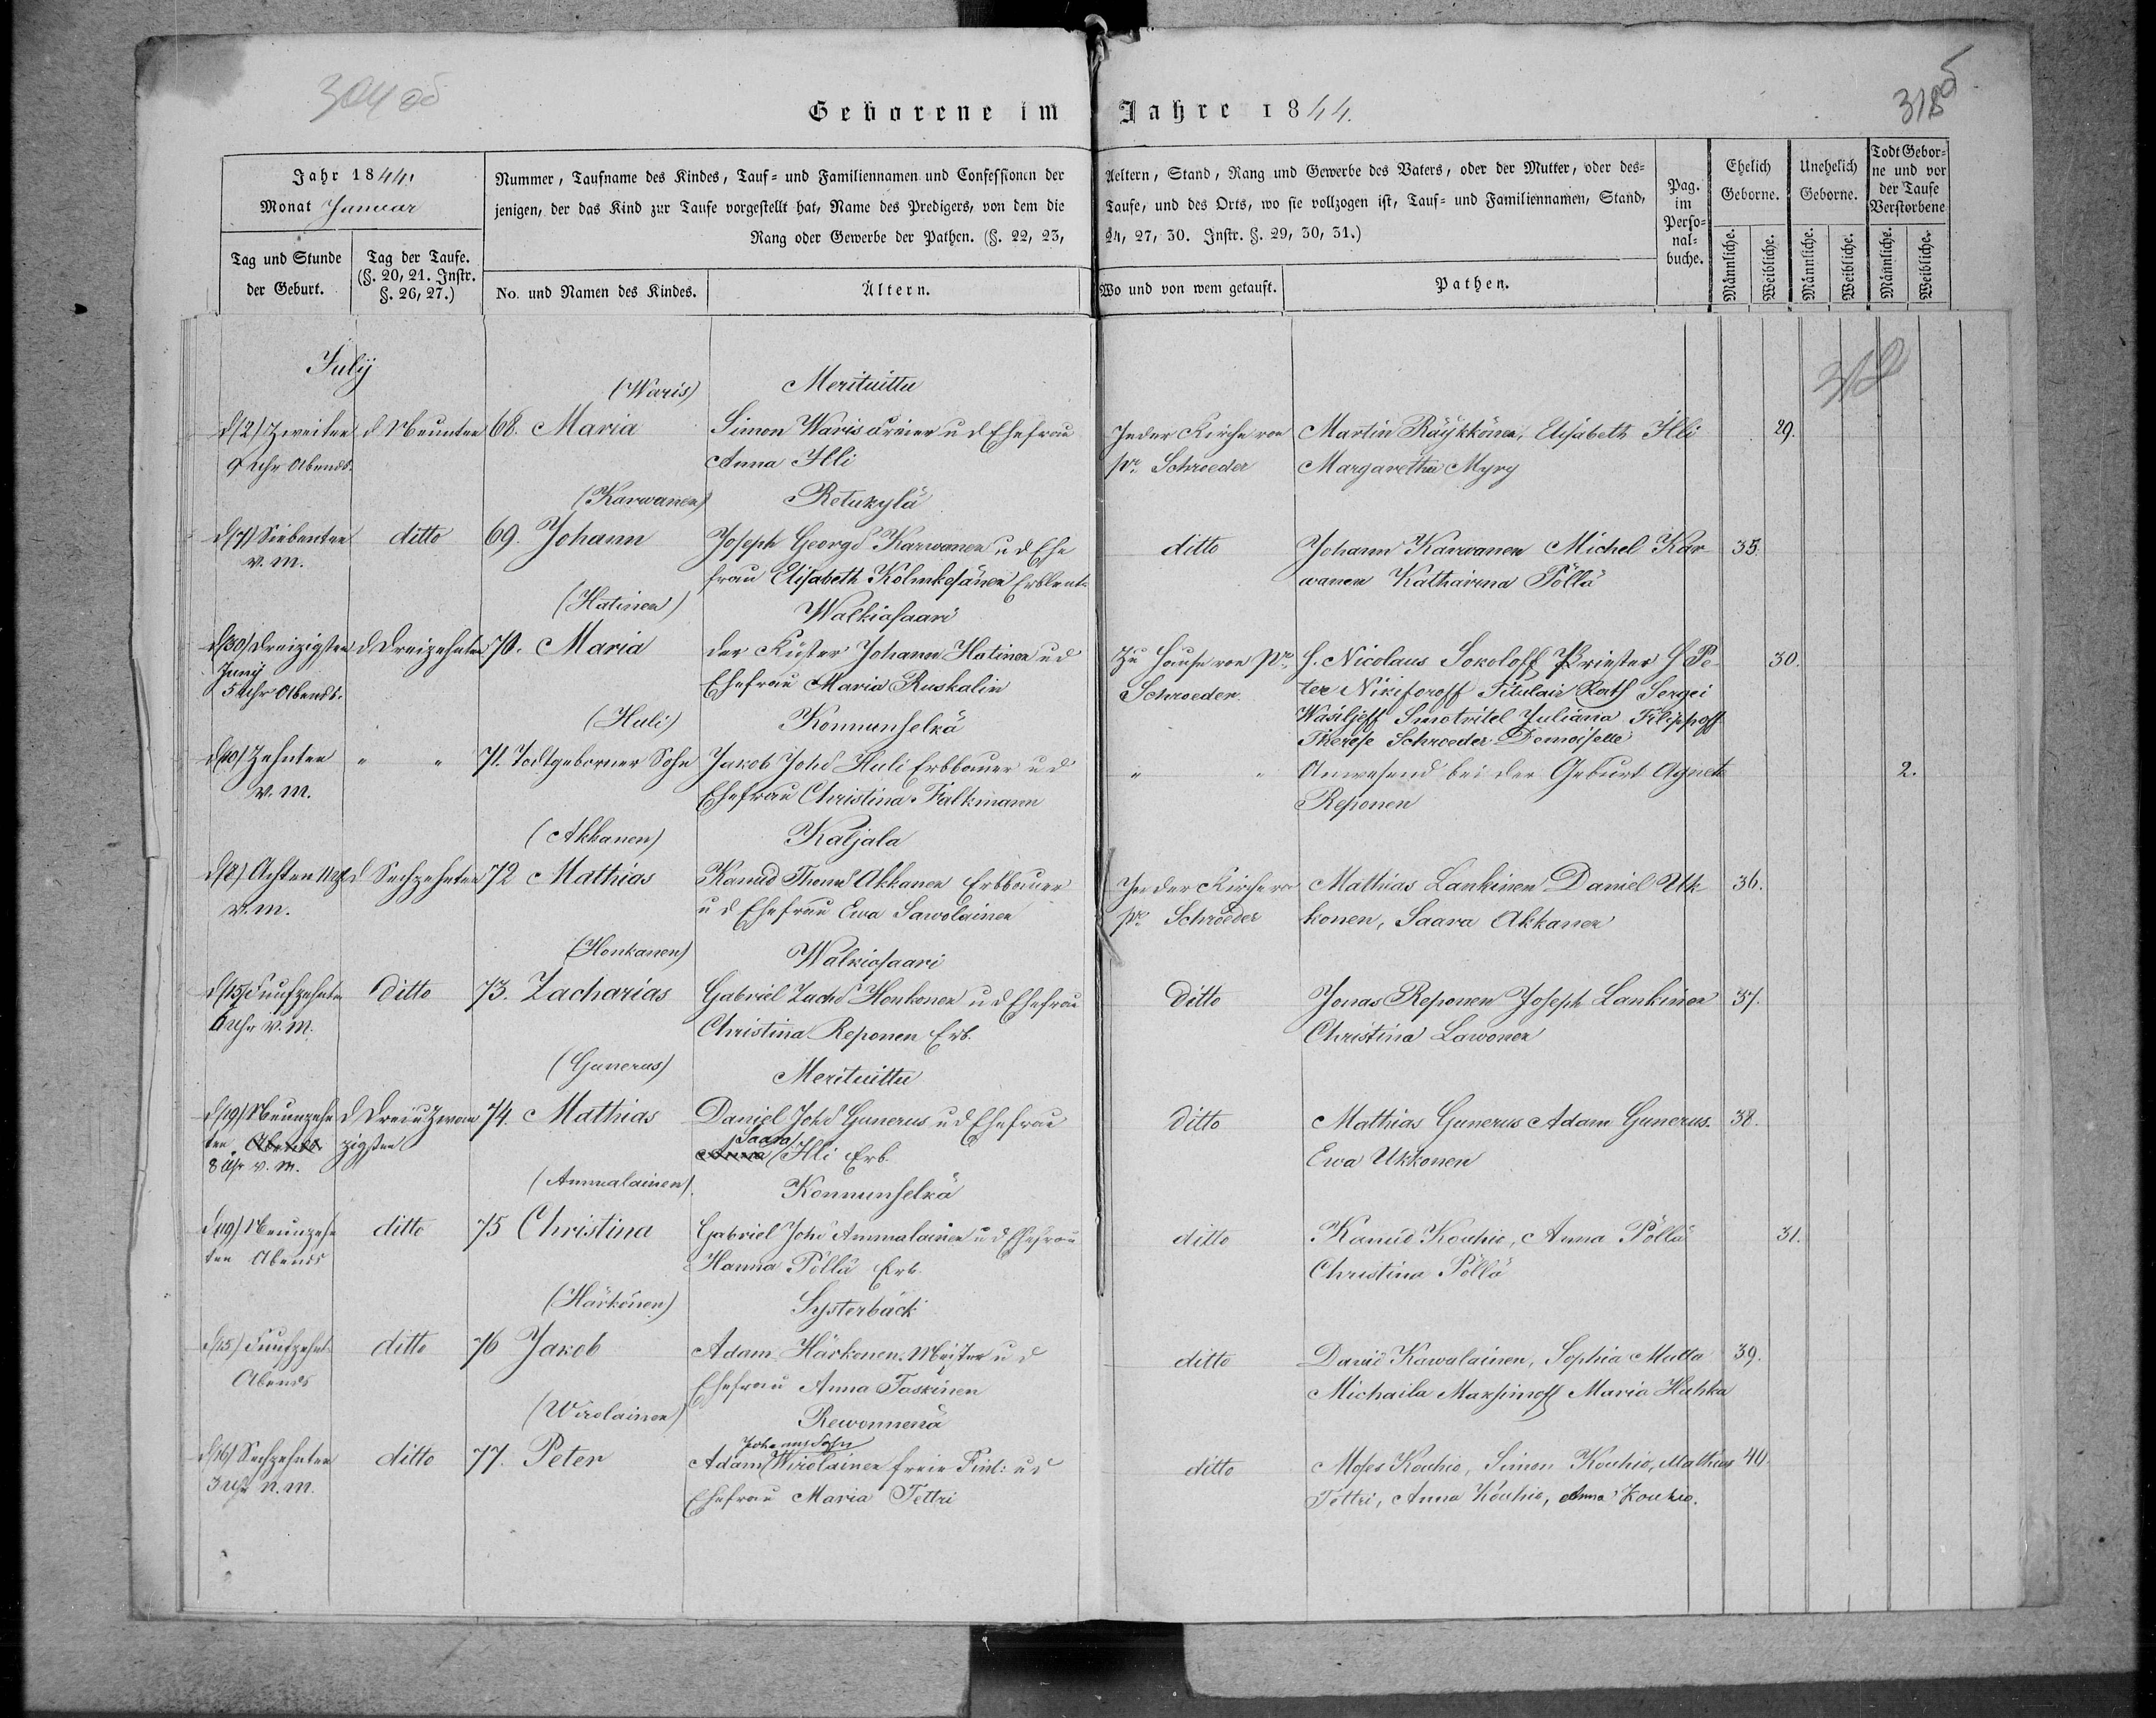 304 об
318б
Geborene im Jahre 1844.
Jahr 1844.
Monat Januar
Nummer, Taufname des Kindes, Tauf= und Familiennamen und Confessionen der Aeltern, Stand, Rang und Gewerbe des Vaters, oder der Mutter, oder des=
jenigen, der das Kind zur Taufe vorgestellt hat, Name des Predigers, von dem die Taufe, und des Orts, wo sie vollzogen ist, Tauf= und Familiennamen, Stand,
Rang oder Gewerbe der Pathen. (§. 22, 23, 24, 27, 30. Instr. §. 29, 30, 31.)
Pag. im Perso=nal=buche.
Ehelich Geborne.
Unehelich Geborne.
Todt Gebor=ne und vor der Taufe Verstorbene
Männliche. Weibliche. Männliche. Weibliche. Männliche. Weibliche.
Tag und Stunde der Geburt.
Tag der Taufe. (§. 20, 21. Instr. §. 26, 27.)
No. und Namen des Kindes.
Ältern.
Wo und von wem getauft.
Pathen.
318
July
(Waris) Merituittu
d (2) Zweiten d Neunten 68. Maria Simon Waris Freier u d Ehefrau In der Kirche von Martin Räykkönen, Elisabeth Ihli 29.
9 Uhr Abends. Anna Ihli pr. Schroeder Margaretha Myry
(Karwanen) Retukylä
d (7) Siebenten ditto 69. Johann Joseph Georgs Karwanen u d Ehe ditto Johann Karwanen Michel Kar 35.
v. m. frau Elisabeth Kolmkesänen Erbleut. wanen Katharina Pöllä
(Hatinen) Walkiasaari
d (30) Dreizigsten d Dreizehnten 70. Maria der Küster Johann Hatinen u d Zu Hause von pr. H. Nicolaus Sokoloff Priester H Pe 30.
Juny Ehefrau Maria Ruskalin Schroeder. ter Nikiforoff Titulair Rath Sergei
5 Uhr Abends. Wasiljeff Smotritel Juliana Filippoff
(Huli) Konnunselkä Therese Schroeder Demoiselle
d (10) Zehnten " " 71. Todtgeborner Sohn Jakob Johs Huli Erbbauer u d " " Anwesend bei der Geburt Agneta 2.
v. m. Ehefrau Christina Falkmann Reponen
(Akkanen) Kaljala
d (8) Achten 11 Uhr d Sechzehnten 72 Mathias Kanud Thoms Akkanen Erbbauer In der Kirche von Mathias Lankinen Daniel Uk 36.
v. m. u d Ehefrau Ewa Sawolainen pr. Schroeder konen, Saara Akkanen
(Honkanen) Walkiasaari
d (15) Funfzehnten ditto 73. Zacharias Gabriel Zachs Honkonen u d Ehefrau Ditto Jonas Reponen Joseph Lankinen 37.
6 Uhr v. m. Christina Reponen Erb. Christina Lawonen
(Gunerus) Merituittu
d (19) Neunzehn d Dreiu Zwan 74. Mathias Daniel Johs Gunerus u d Ehefrau Ditto Mathias Gunerus Adam Gunerus. 38.
ten Abends zigsten Saara
8 Uhr v. m. Anna Ihli Erb. Ewa Ukkonen
(Ammalainen) Konnunselkä
d (19) Neunzehn ditto 75 Christina Gabriel Johs Ammalainen u d Ehefrau ditto Kanud Kouhio, Anna Pöllä 31.
ten Abends Hanna Pöllä Erb. Christina Pöllä
(Härkönen) Systerbäck
d (15) Funfzehnt. ditto 76 Jakob Adam Härkönen. Meister u d ditto David Kawalainen, Sophia Mutta 39.
Abends Ehefrau Anna Taskinen Michaila Maxsimoff Maria Huhka
(Wirolainen) Rewonnenä
Johannssohn
d (16) Sechzehnten ditto 77. Peter Adam Wirolainen freie Finl: u d ditto Moses Kouhio, Simon Kouhio, Mathias 40.
3 Uhr n. m. Ehefrau Maria Tettri Tettri, Anna Kouhio, Anna Kouhio.